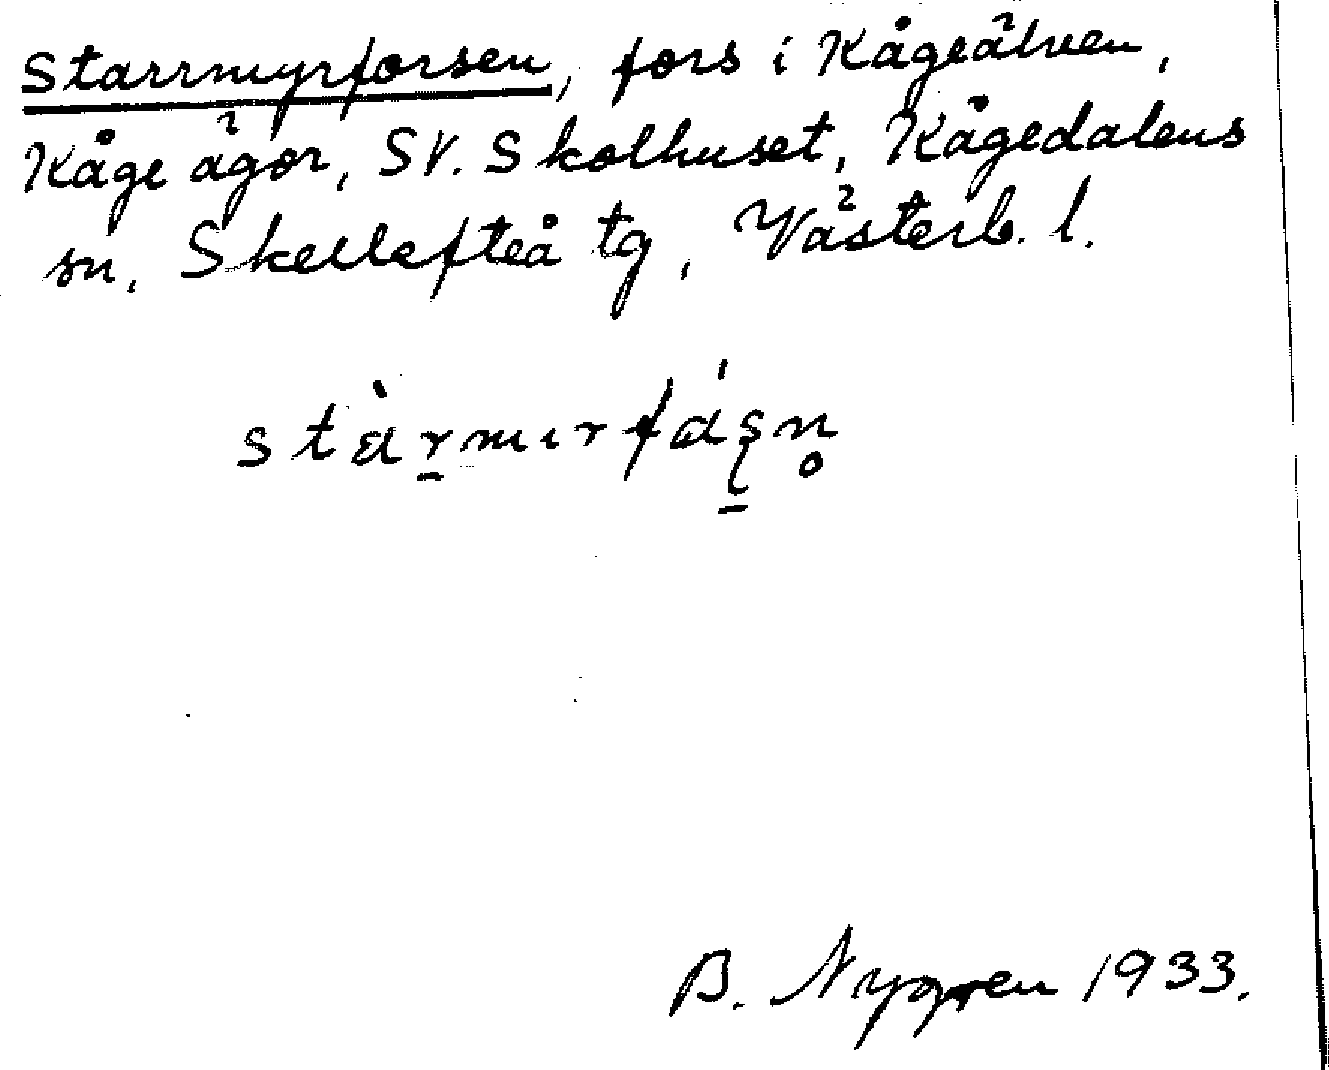 Starrmyrforsen, fors i Kågeälven,
Kåge ägor, SV. Skolhuset, Kågedalens
sn, Skellefteå tg, Västerb. l.
stàr̠mırfáʂ̠n̥
B. Nygren 1933.